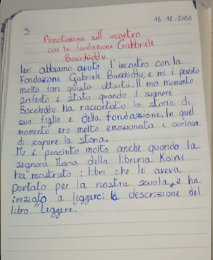 16-12-2021
5
Annotazione sull'incontro
con la fondazione Gabriele
Bacchiddu
Ieri abbiamo avuto l'incontro con la
Fondazione Gabriele Bacchiddu, e mi è piaciuto
molto sin questo attività. Il mio momento
preferito è stato quando il signore
Bacchiddu ha raccontato la storia di
suo figlio e della fondazione. In quel
momento ero molto emozionata e curiosa
di sapere la storia.
Mi è piaciuto molto anche quando la
signora Maria della libreria Koinè
ha mostrato i libri che lei aveva
portato per la nostra scuola, e ha
iniziato a leggerci la descrizione del
libro "Leggere".